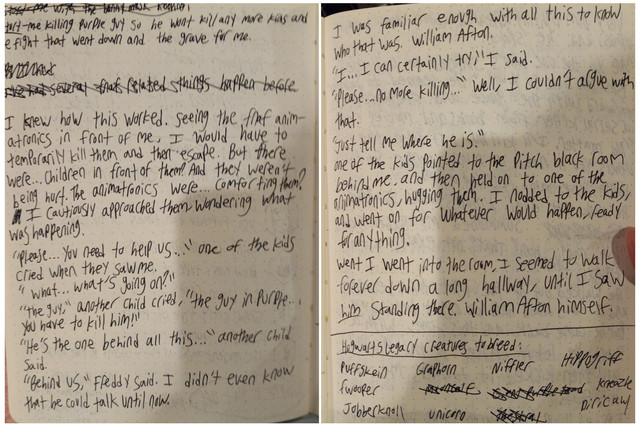 me killing Purple guy so he wont kill any more kids and
e fight that went down and the grave for me.
several fnaf related things happen before
I knew how this worked. seeing the fnaf anim-
atronics in front of me, I would have to
temporarily kill them and then escape. But there
were... Children in front of them? And they weren't
being hurt. The animatronics were... comforting them?
I cautiously approached them, wondering what
was happening.
"Please... You need to help us..." one of the kids
cried when they saw me.
"what... what's going on?"
"the guy," another child cried, "the guy in Purple...
you have to kill him!"
"He's the one behind all this..." another child
said.
"Behind us," Freddy said. I didn't even know
that he could talk until now.
I was familiar enough with all this to know
who that was. William Afton.
"I... I can certainly try," I said.
"Please... no more killing..." well, I couldn't argue with
that.
"Just tell me where he is."
one of the kids pointed to the pitch black room
behind me. and then held on to one of the
animatronics, hugging them. I nodded to the kids,
and went on for whatever would happen, ready
for anything.
went I went into the room, I seemed to walk
forever down a long hallway, until I saw
him standing there. William Afton himself.
Hogwarts Legacy creatures to breed:
Puffskein Graphorn Niffler Hippogriff
fwooper kneazle
Jobberknoll unicorn Diricawl